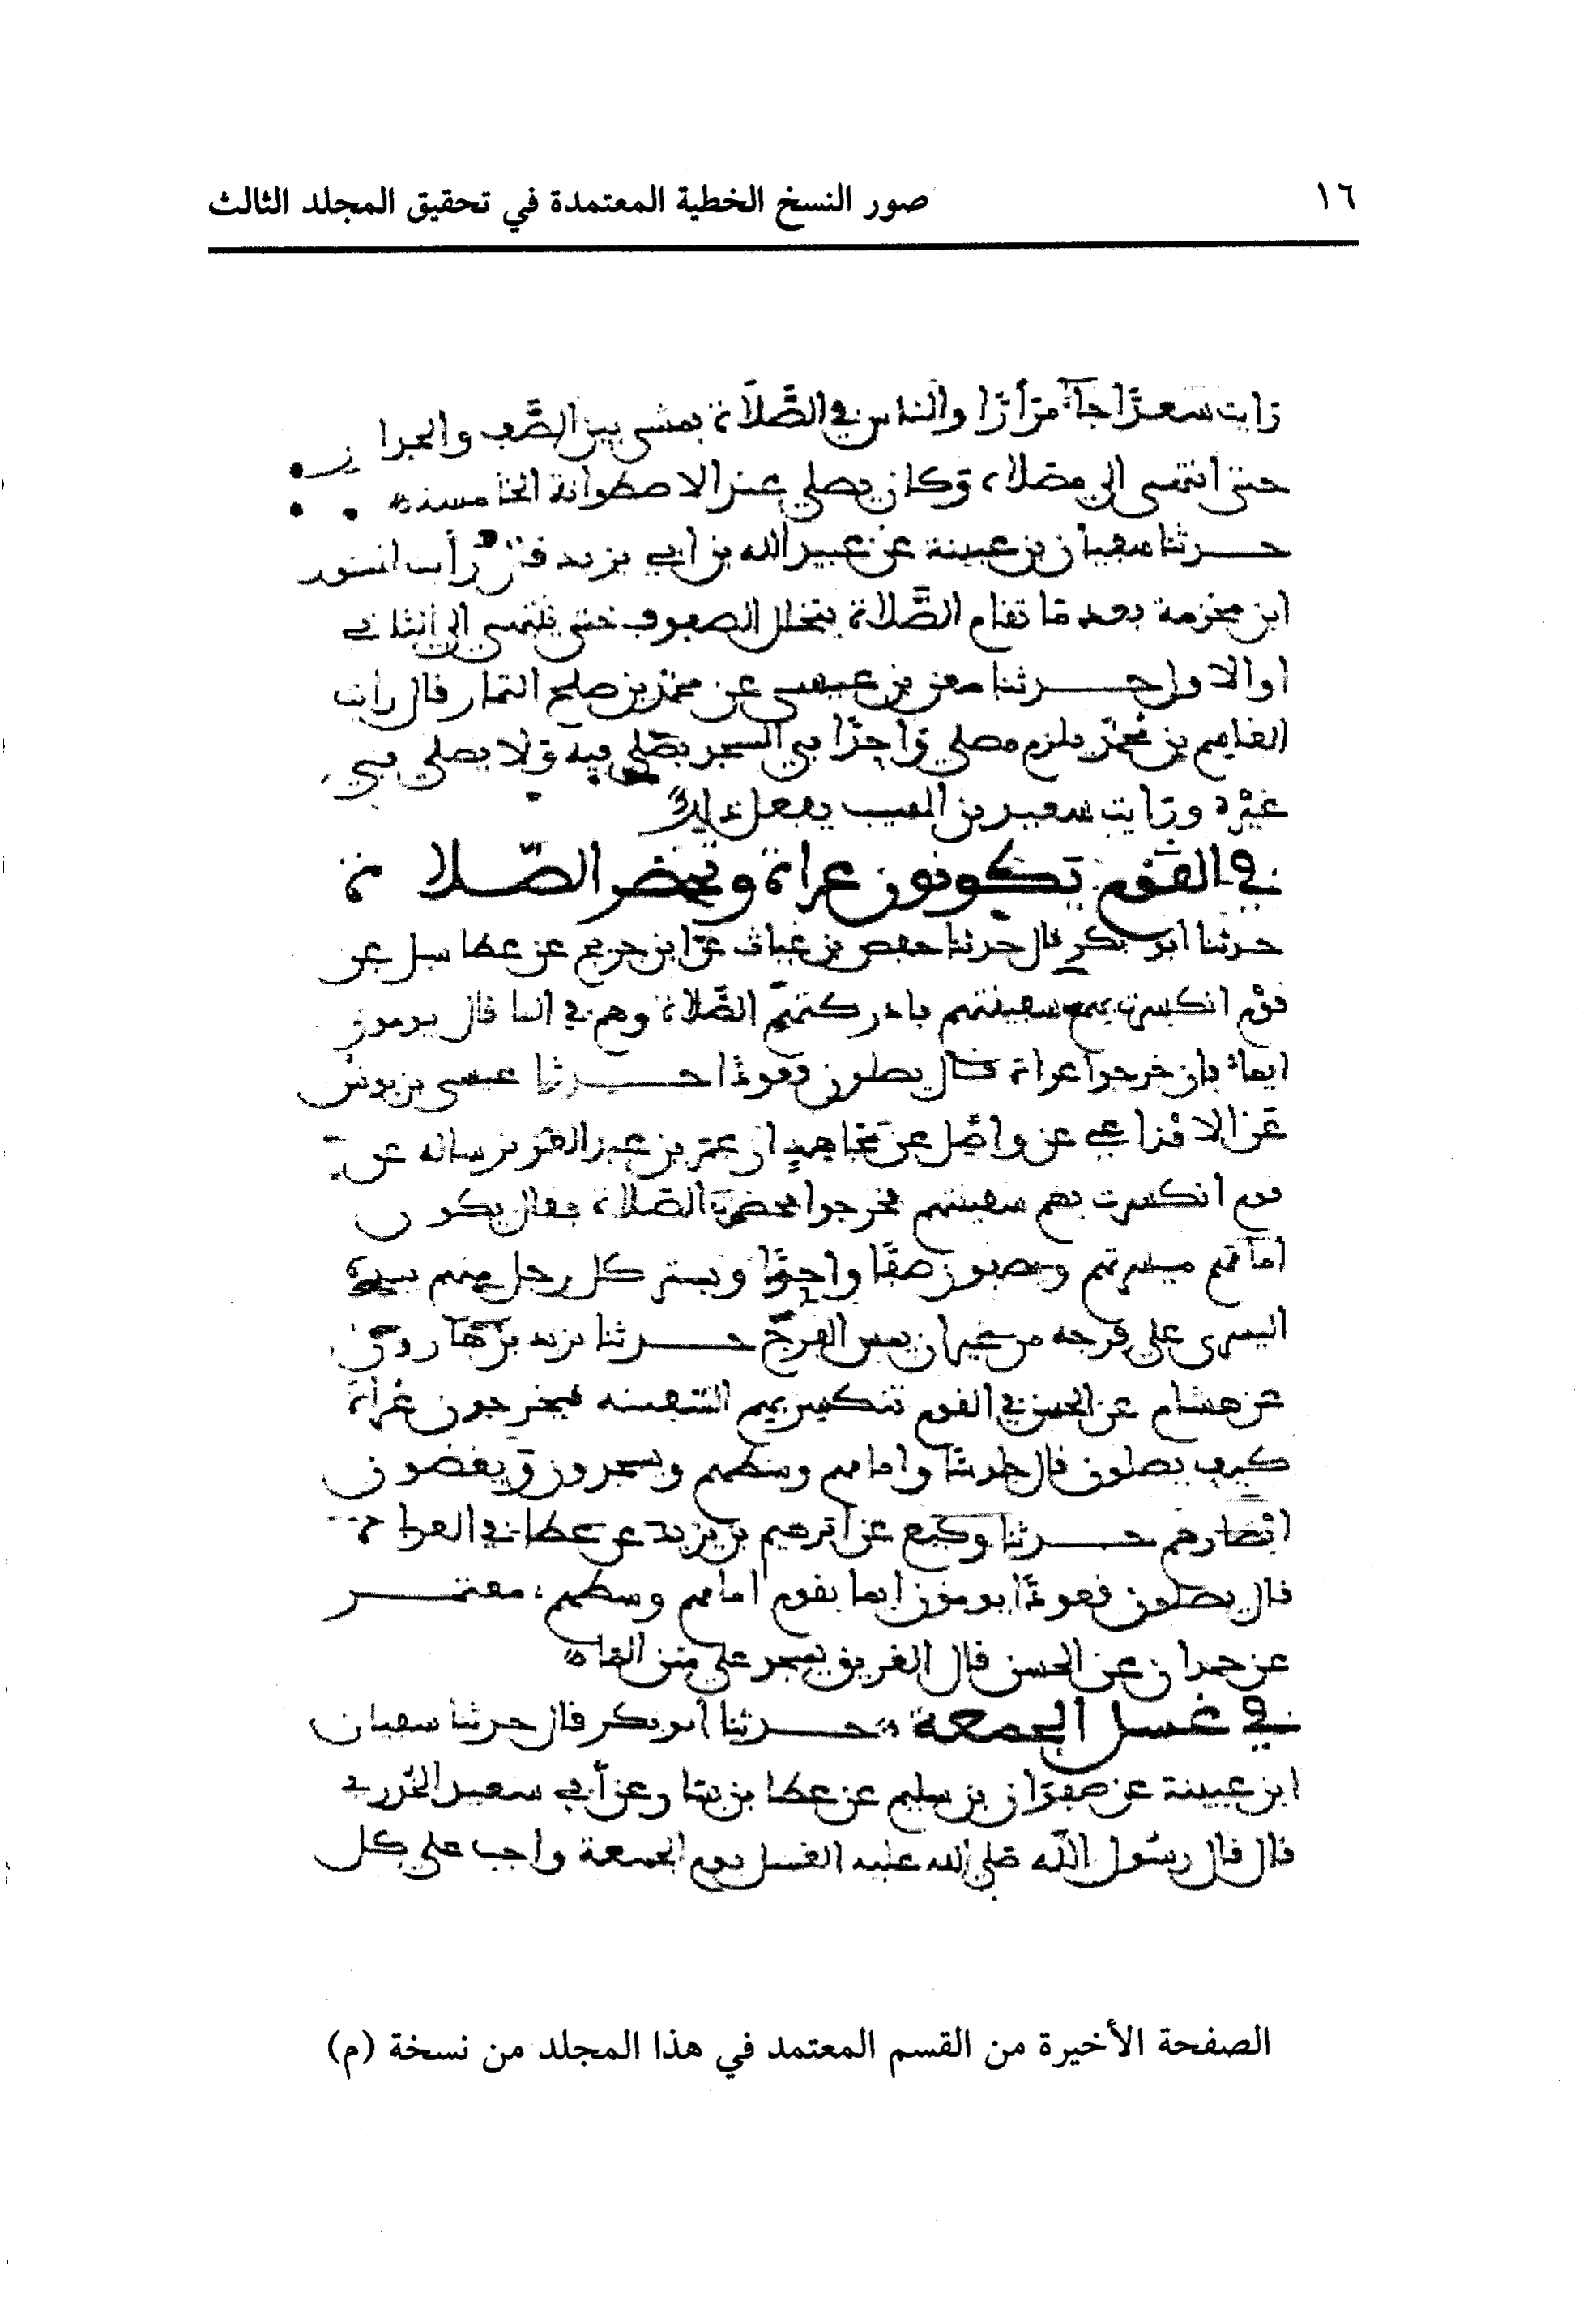 ١٦
صور النسخ الخطية المعتمدة في تحقيق المجلد الثالث
رايت سعدا جاء مرارا والناس في الصلاة يمشي بين الصف والجدار
حتى انتهى الى مصلاه وكان يصلي عند الاصطوانة الخامسة
حدثنا سفيان بن عيينة عن عبيد الله بن ابي يزيد قال رأيت المسور
ابن مخرمة بعد ما تقام الصلاة يتخلل الصفوف حتى ينتهي الى الثاني
او الاول حدثنا معن بن عيسى عن محمد بن صلح التمار قال رايت
القاسم بن محمد يلزم مصلى واحدا في المسجد يصلي فيه ولا يصلي في
غيره ورايت سعيد بن المسيب يفعل ذلك
في القوم يكونون عراة وتحضر الصلاة
حدثنا ابو بكر قال حدثنا حفص بن غياث عن ابن جريج عن عطا سيل عن
قوم انكسرت بهم سفينتهم فادركتهم الصلاة وهم في الما قال يومون
ايماء فان خرجوا عراة قال يصلون قعودا حدثنا عيسى بن يونس
عن الاوزاعي عن واصل عن مجاهد ان عمر بن عبد العزيز ساله عن
قوم انكسرت بهم سفينتهم فخرجوا فحضرت الصلاة فقال يكون
امامهم ميسرتهم ويصفون صفا واحدا ويستر كل رجل منهم بيده
اليسرى على فرجه من غير ان يمس الفرج حدثنا يزيد بن هارون
عن هشام عن الحسن في القوم تنكسر بهم السفينه فيخرجون عراة
كيف يصلون قال جلوسا وامامهم وسطهم ويسجدون ويغضون
ابصارهم حدثنا وكيع عن ابرهيم بن يزيد عن عطا في العراة
قال يصلون قعودا يومون ايما يقوم امامهم وسطهم، معتمر
عن حمران عن الحسن قال الغريق يسجد على متن الماء
في غسل الجمعة حدثنا ابو بكر قال حدثنا سفيان
ابن عيينة عن صفوان بن سليم عن عطا بن يسار عن أبي سعيد الخدري
قال قال رسول الله صلى الله عليه الغسل يوم الجمعة واجب على كل
الصفحة الأخيرة من القسم المعتمد في هذا المجلد من نسخة (م)